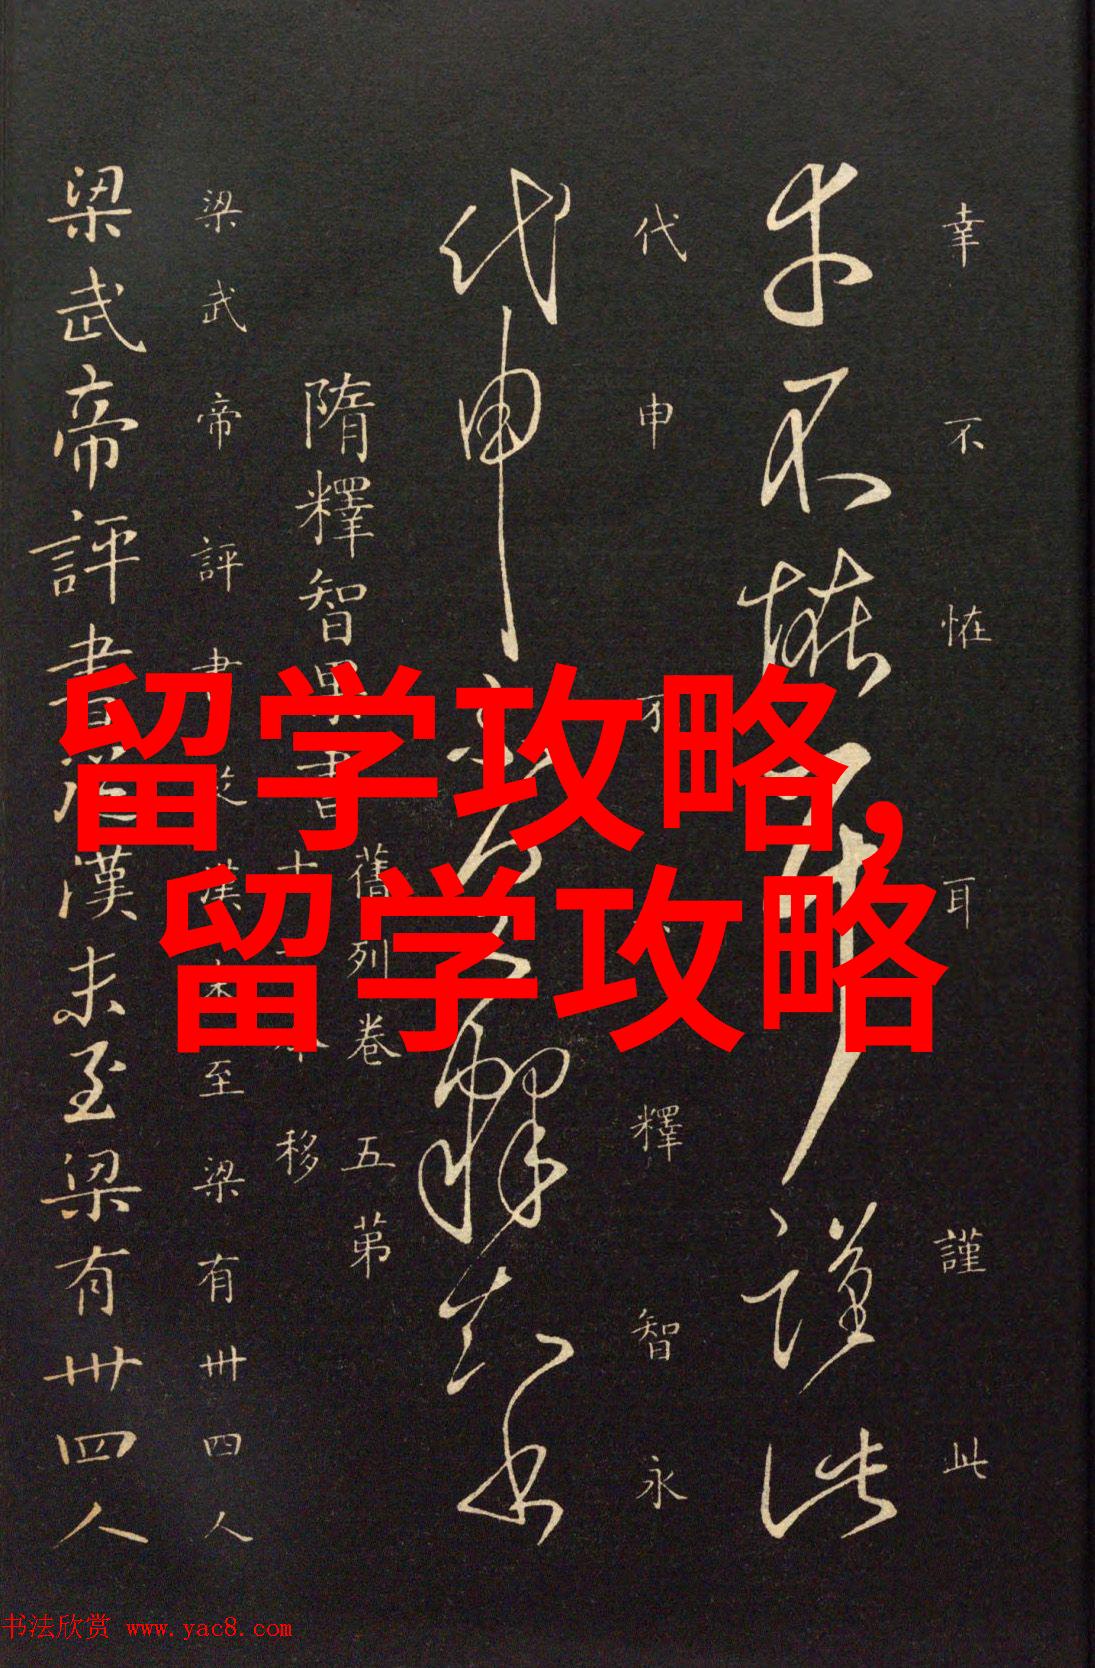 留学攻略,
留学攻略
幸不恠耳謹此
幸不恠耳謹此
代申釋智永
代申釋智永
隋釋智果書
舊列卷五第
移
梁武帝評書從漢末至梁有卅四人
梁武帝評書從漢末至梁有卅四人
书法欣赏 www.yac8.com